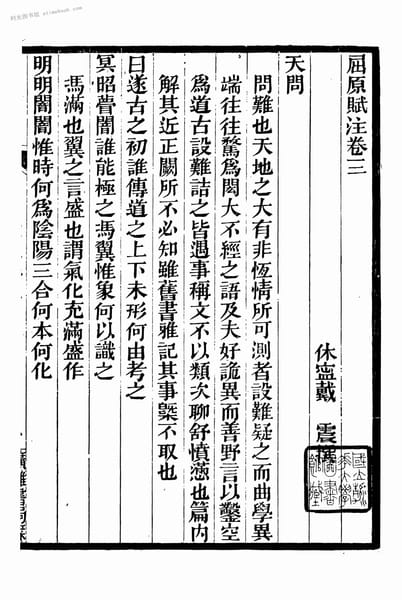 屈原賦注卷三
休寧戴　震撰
天問
問難也天地之大有非恆情所可測者設難疑之而曲學異
端往往騖爲閎大不經之語及夫好詭異而善野言以鑿空
爲道古設難詰之皆遇事稱文不以類次聊舒憤懣也篇内
解其近正闕所不必知雖舊書雅記其事槩不取也
曰遂古之初誰傳道之上下未形何由考之
冥昭瞢闇誰能極之馮翼惟象何以識之
馮滿也翼之言盛也謂氣化充滿盛作
明明闇闇惟時何爲陰陽三合何本何化